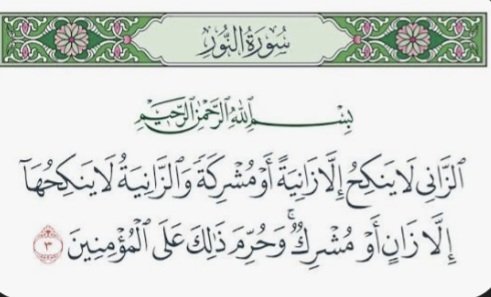 سُورَةُ النُّورِ
بِسْمِ اللَّهِ الرَّحْمَٰنِ الرَّحِيمِ
الزَّانِي لَا يَنكِحُ إِلَّا زَانِيَةً أَوْ مُشْرِكَةً وَالزَّانِيَةُ لَا يَنكِحُهَآ
إِلَّا زَانٍ أَوْ مُشْرِكٌ ۚ وَحُرِّمَ ذَٰلِكَ عَلَى الْمُؤْمِنِينَ ٣